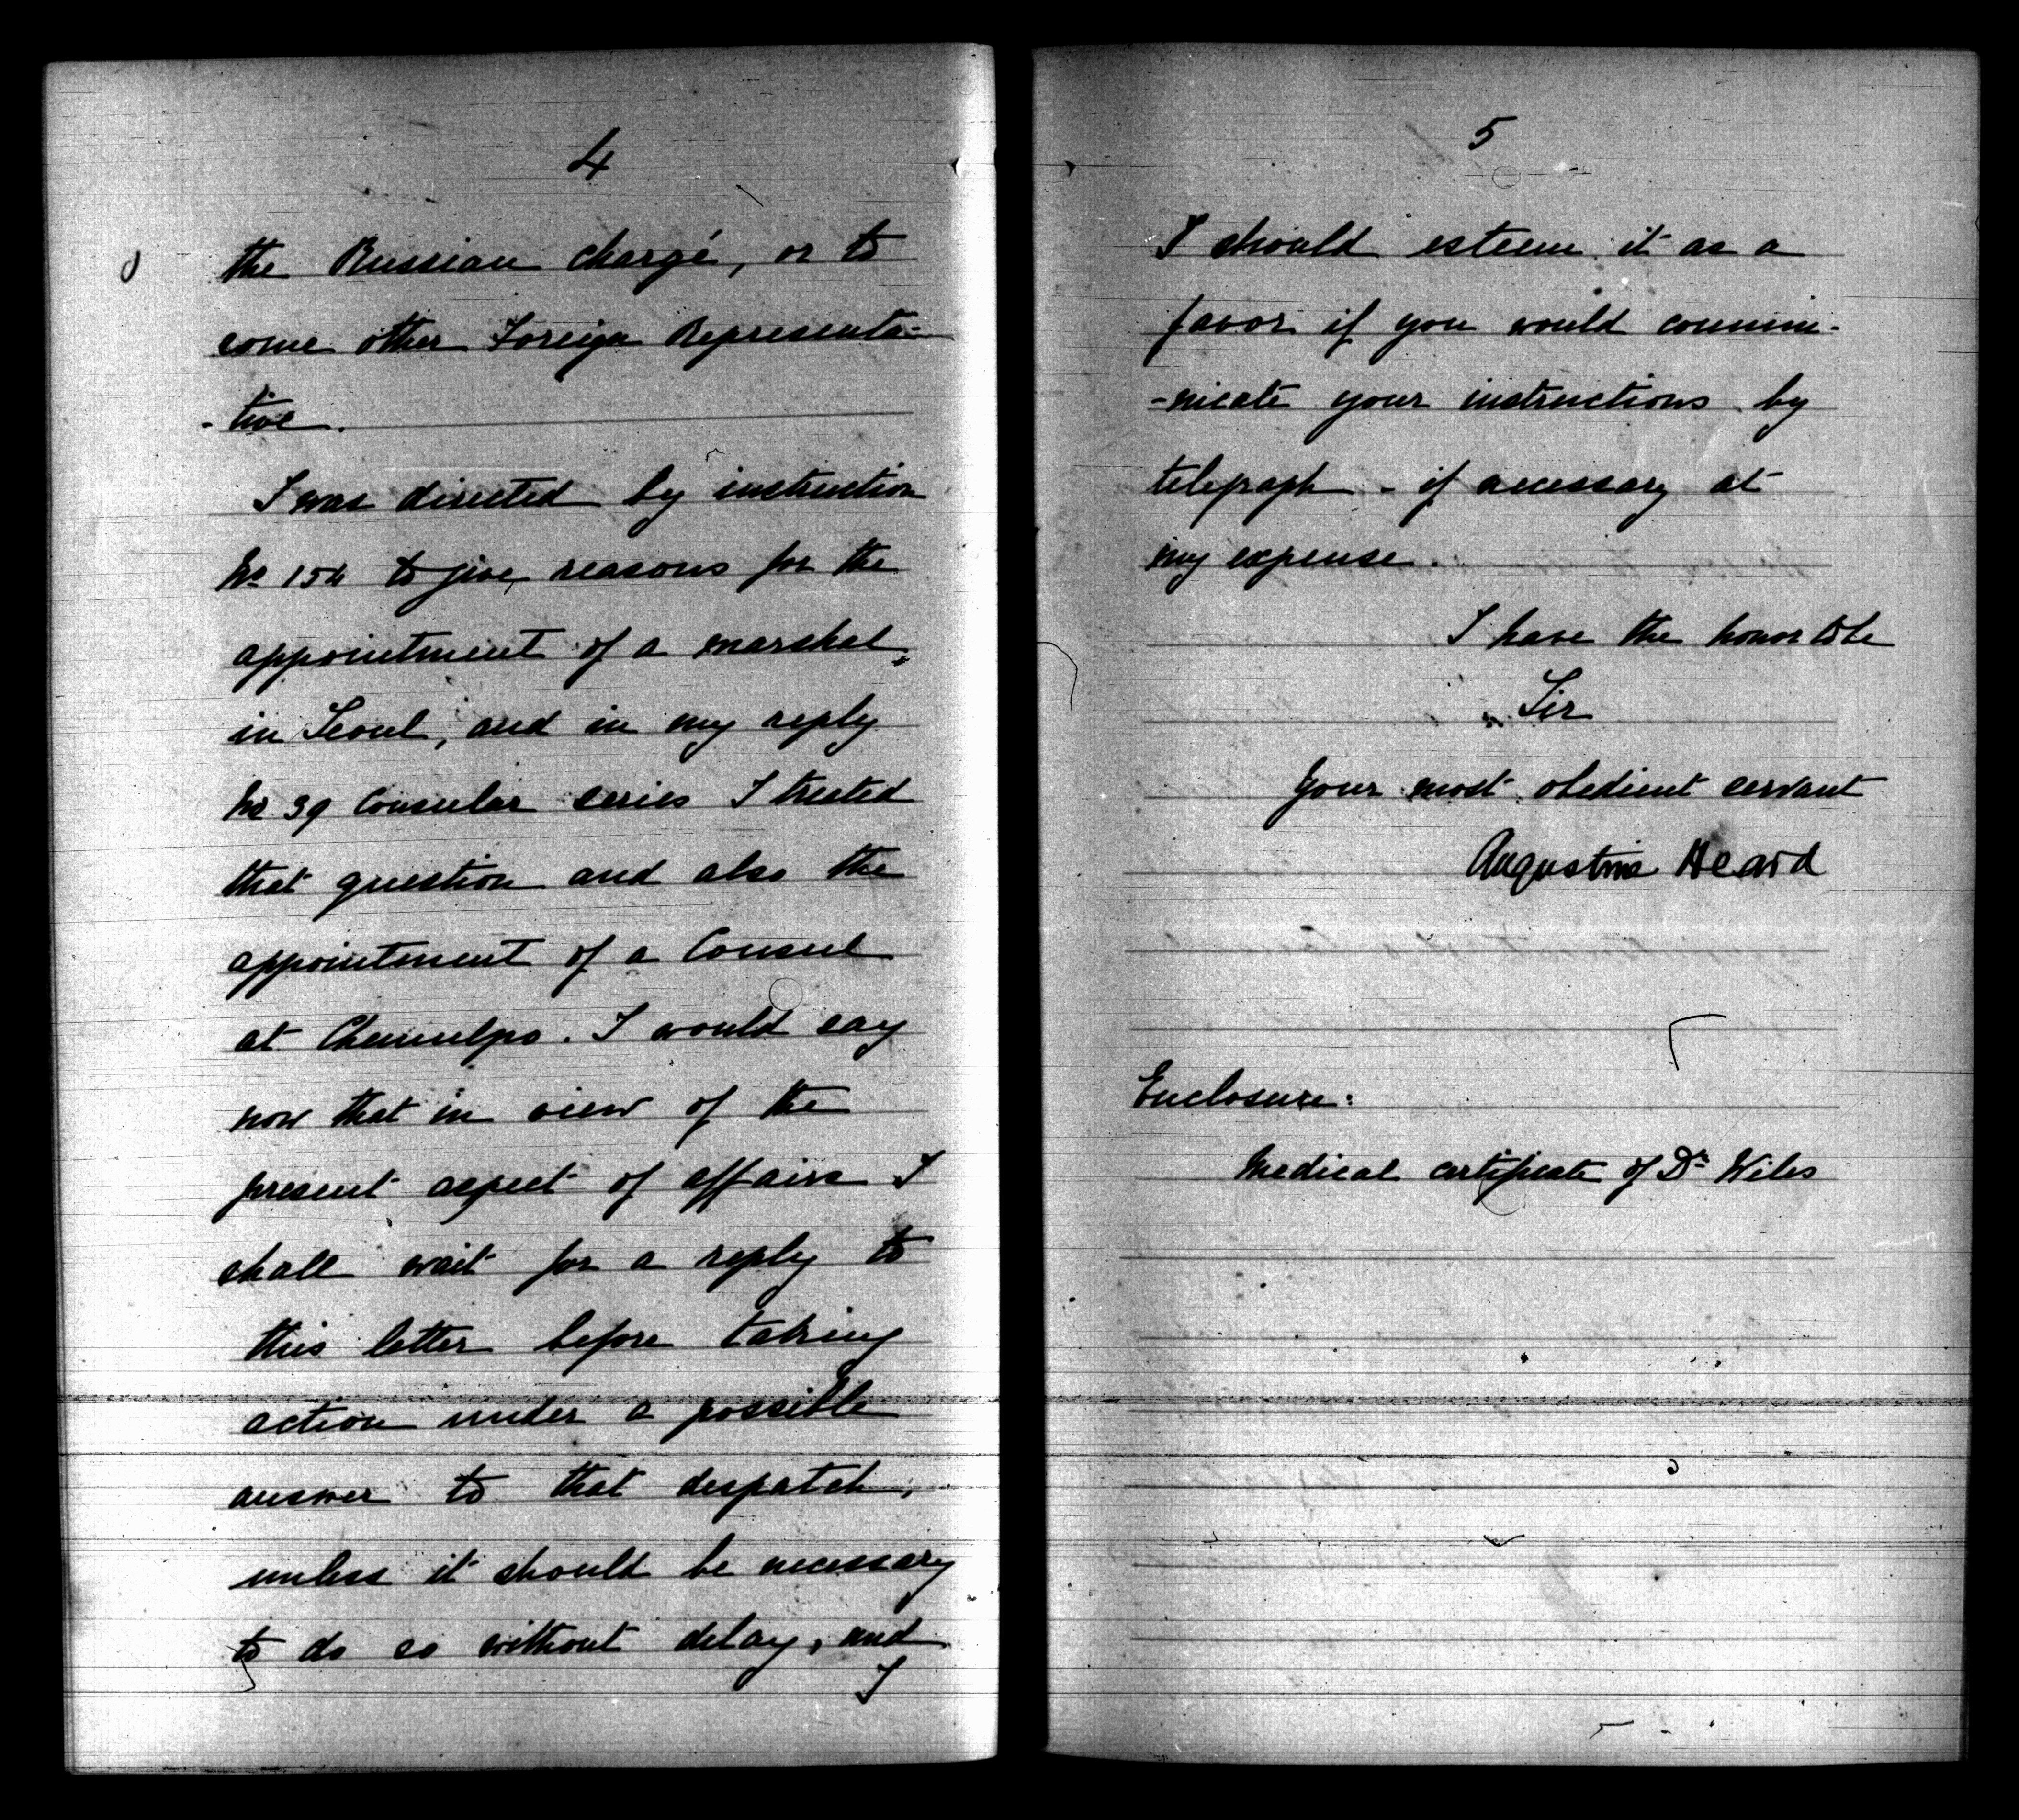 4
the Russian chargé, or to
some other Foreign Representa-
-tive.
I was directed by instruction
No 154 to give reasons for the
appointment of a marshal,
in Seoul, and in my reply
No 39 Consular series I treated
that question and also the
appointment of a Consul
at Chemulpo. I would say
now that in view of the
present aspect of affairs I
shall wait for a reply to
this letter before taking
action under a possible
answer to that despatch,
unless it should be necessary
to do so without delay, and
I
5
I should esteem it as a
favor if you would commu-
-nicate your instructions by
telegraph - if necessary at
my expense.
I have the honor to be
Sir
Your most obedient servant
Augustine Heard
Enclosure:
Medical certificate of Dr Wiles